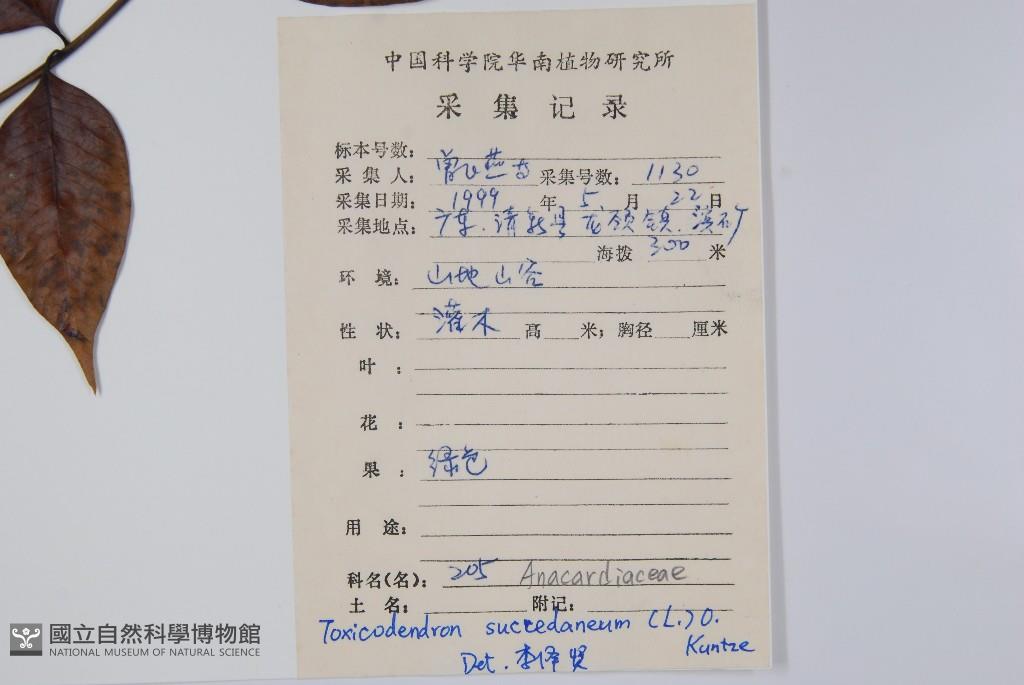 中国科学院华南植物研究所
采集记录
标本号数:
采集人: 曾飞燕等 采集号数: 1130
采集日期: 1999 年 5 月 22 日
采集地点: 广东.清新县 龙颈镇.
海拨 300 米
环境: 山地山谷
性状: 灌木 高 米; 胸径 厘米
叶:
花:
果: 绿色
用途:
科名(名): 205 Anacardiaceae
土名: 附记:
Toxicodendron succedaneum (L.) O.
Kuntze
Det. 李泽贤
國立自然科學博物館
NATIONAL MUSEUM OF NATURAL SCIENCE